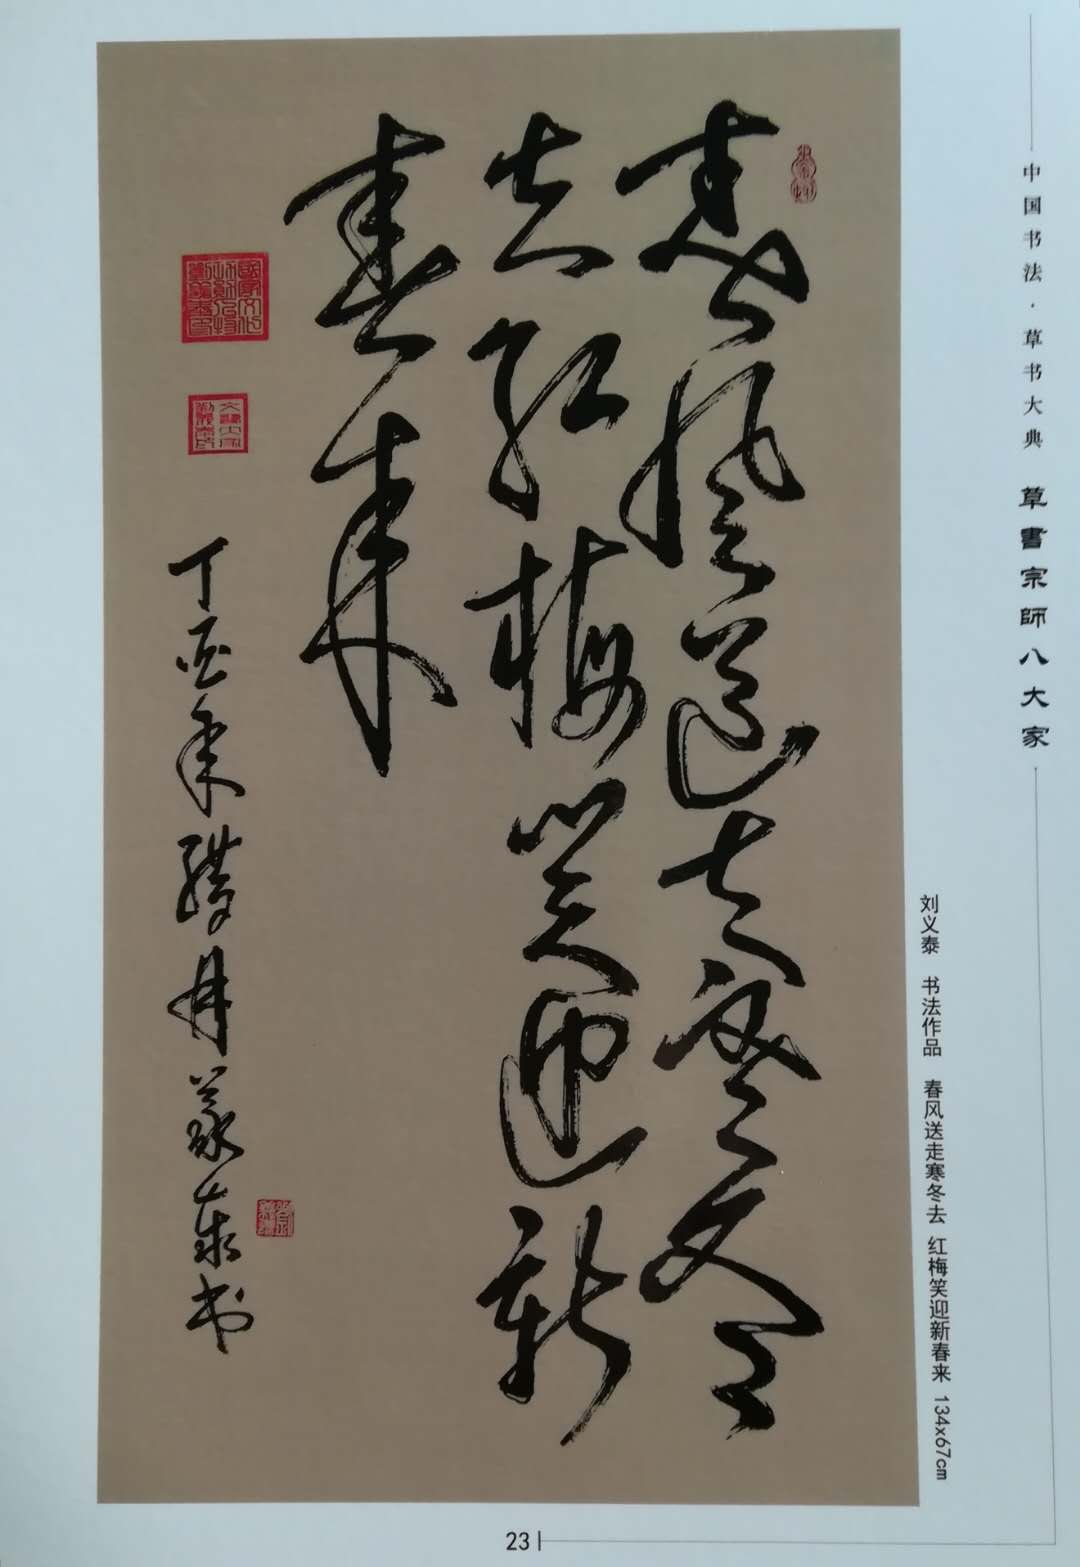 春风送走寒冬
去红梅笑迎新
春来
丁酉年腊月义泰书
中国书法·草书大典 草書宗師八大家
刘义泰 书法作品 春风送走寒冬去 红梅笑迎新春来 134x67cm
23